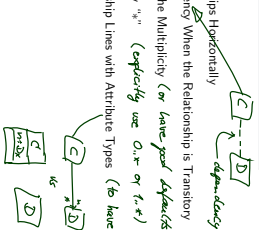 C D
dependency
ips Horizontally
ency When the Relationship is Transitory
he Multiplicity (or have good defaults
y "*" (explicitly use 0..* or 1..*)
hip Lines with Attribute Types (to have
C D
vs
C D